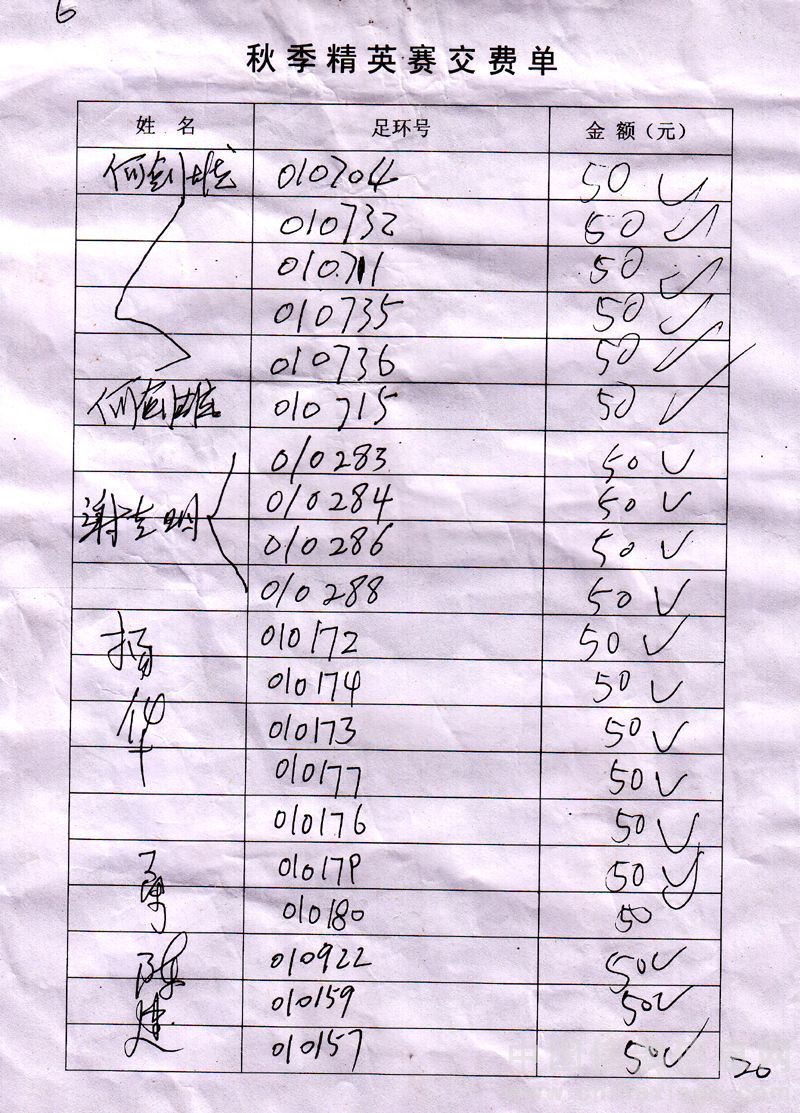 6
秋季精英赛交费单
姓 名 足环号 金 额（元）
何剑雄 010704 50
010732 50
010711 50
010735 50
010736 50
何剑雄 010715 50
010283 50
010284 50
谢志明 010286 50
010288 50
杨 010172 50
010174 50
华 010173 50
010177 50
010176 50
010179 50
010180 50
陈 010922 50
建 010159 50
010157 50
20